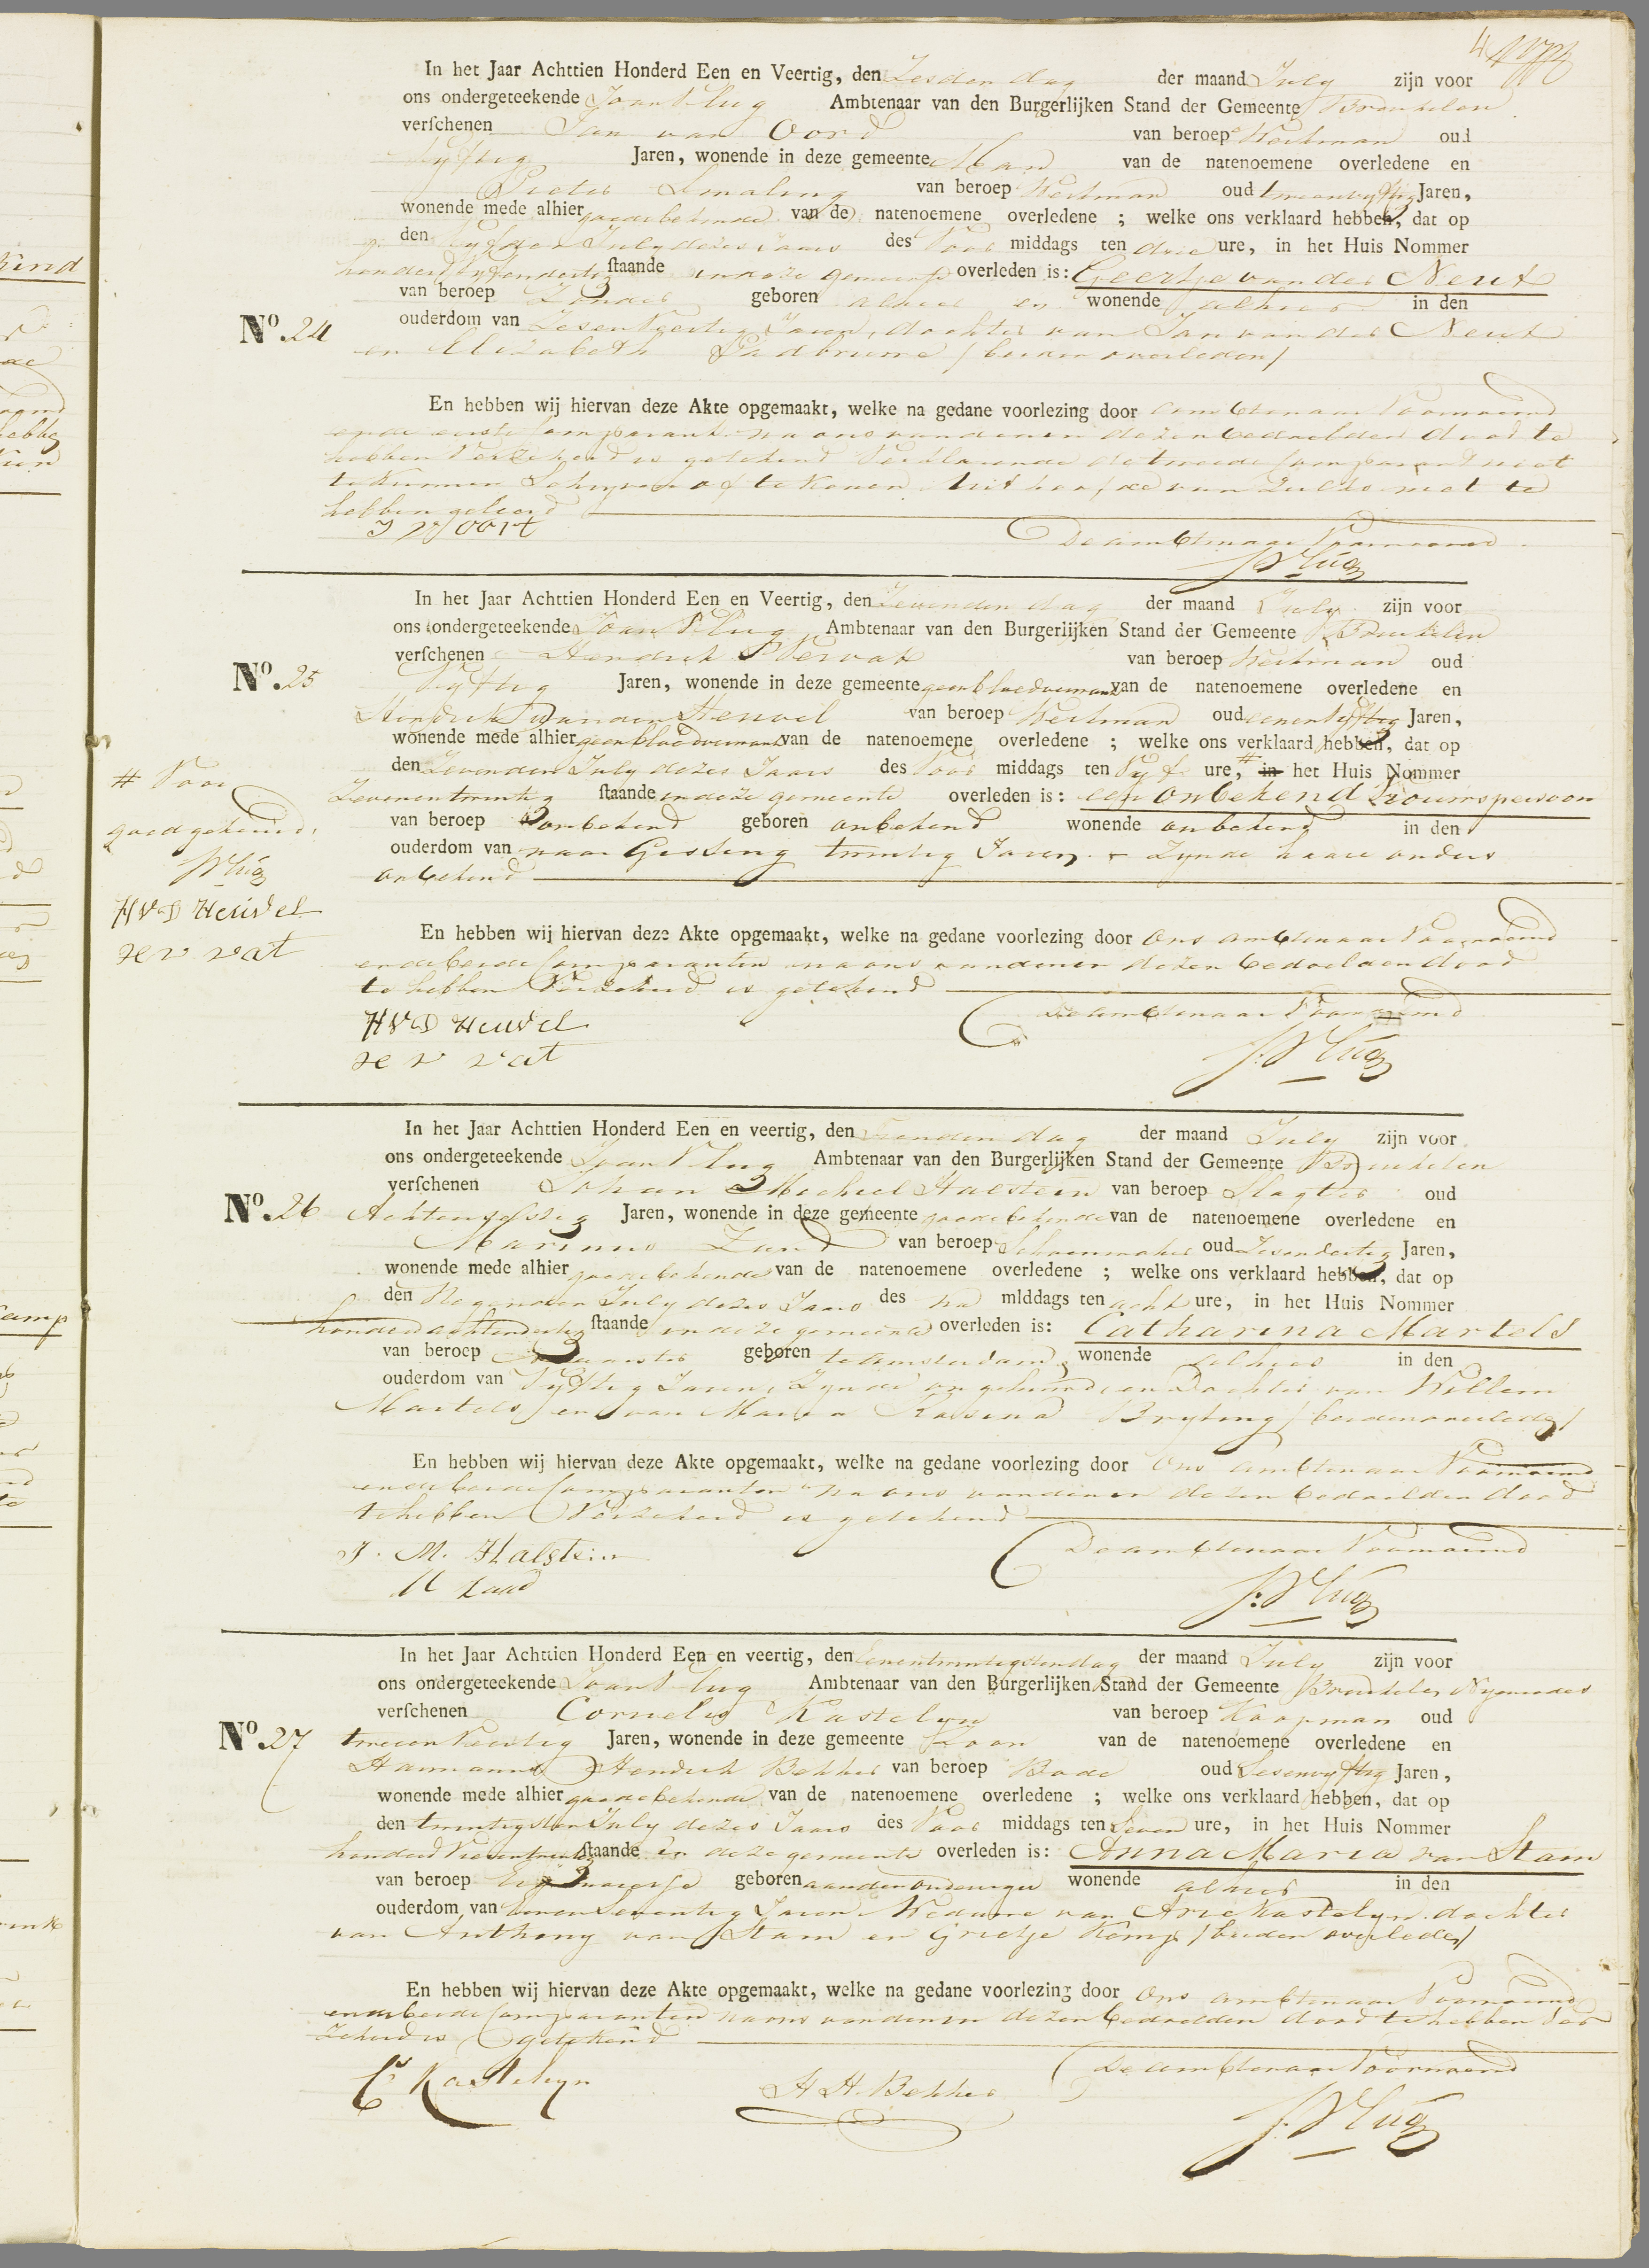 4
In het Jaar Achttien Honderd Een en Veertig, den Zesden dag der maand July zijn voor
ons ondergeteekende Joan Plug Ambtenaar van den Burgerlijken Stand der Gemeente Breukelen
verschenen Jan van Oord van beroep Werkman oud
Vyftig Jaren, wonende in deze gemeente Man van de natenoemene overledene en
Pieter Smaling van beroep Werkman oud tweenvyftig Jaren,
wonende mede alhier goede bekende van de natenoemene overledene ; welke ons verklaard hebben, dat op
den Vyfden July dezes Jaars des Voor middags ten drie ure, in het Huis Nommer
honderd staande in deze gemeente overleden is: Geertje van der Neut
van beroep Zonder geboren alhier en wonende alhier in den
No. 24
ouderdom van Zesenveertig Jaren, dochter van Jan van der Neut
en Elizabeth /beiden overleden/
En hebben wij hiervan deze Akte opgemaakt, welke na gedane voorlezing door ambtenaar Voornoemd
en de eerste Comparant na ons van den in dezen bedoelden dood te
hebben Verzekerd is getekend Verklarende de tweede Comparant niet
te kunnen Schryven of te tekenen uit hoofde van Zulks niet te
hebben geleerd
J V Oort De ambtenaar Voornoemd
JPlug
In het Jaar Achttien Honderd Een en Veertig, den Zevenden dag der maand July zijn voor
ons ondergeteekende Joan Plug Ambtenaar van den Burgerlijken Stand der Gemeente Breukelen
verschenen Hendrik Vervat van beroep Werkman oud
No. 25
Vyftig Jaren, wonende in deze gemeente geen bloedverwant van de natenoemene overledene en
Hendrik van den Heuvel van beroep Werkman oud eenenvyftig Jaren,
wonende mede alhier geen bloedverwant van de natenoemene overledene ; welke ons verklaard hebben, dat op
den Zevenden July dezes Jaars des Voor middags ten Vyf ure, # in het Huis Nommer
# Voor
goed gekeurd.
JPlug
HVD Heuvel
Zevenentwintig staande in deze gemeente overleden is: een onbekend Vrouwspersoon
van beroep onbekend geboren onbekend wonende onbekend in den
ouderdom van naar Gissing twintig Jaren Zynde haare ouders
onbekend
En hebben wij hiervan deze Akte opgemaakt, welke na gedane voorlezing door Ons ambtenaar Voornoemd
en de beide Comparanten na ons van den in dezen bedoelden dood
te hebben Verzekerd is getekend
HVD Heuvel De ambtenaar Voornoemd
J:Plug
In het Jaar Achttien Honderd Een en veertig, den Tienden dag der maand July zijn voor
ons ondergeteekende Joan Plug Ambtenaar van den Burgerlijken Stand der Gemeente Breukelen
verschenen Johan Michiel Halstein van beroep Slagter oud
No. 26
Achtenzestig Jaren, wonende in deze gemeente goede bekende van de natenoemene overledene en
Marinus Zand van beroep Schoenmaker oud Zesendertig Jaren,
wonende mede alhier goede bekende van de natenoemene overledene ; welke ons verklaard hebben, dat op
den Negenden July dezes Jaars des na middags ten acht ure, in het Huis Nommer
honderd achtendertig staande in deze gemeente overleden is: Catharina Martels
van beroep geboren te Amsterdam, wonende alhier in den
ouderdom van Vyftig Jaren, Zynde ongehuwd, en Dochter van Willem
Martels, en van Maria Rosina Bryting /beiden overleden/
En hebben wij hiervan deze Akte opgemaakt, welke na gedane voorlezing door Ons ambtenaar Voornoemd
en de beide Comparanten na ons van den in dezen bedoelden dood
te hebben Verzekerd is getekend
J. M. Halstein De ambtenaar Voornoemd
M Zand
J:Plug
In het Jaar Achttien Honderd Een en veertig, den Eenentwintigsten dag der maand July zijn voor
ons ondergeteekende Joan Plug Ambtenaar van den Burgerlijken Stand der Gemeente Breukelen Nyenrodes
verschenen Cornelis Kastelyn van beroep Koopman oud
No. 27
tweeenveertig Jaren, wonende in deze gemeente Zoon van de natenoemene overledene en
Harmanus Hendrik Bekker van beroep Bode oud Sesenvyftig Jaren,
wonende mede alhier goede bekende van de natenoemene overledene ; welke ons verklaard hebben, dat op
den twintigsten July dezes Jaars des Voor middags ten Seven ure, in het Huis Nommer
honderd staande in deze gemeente overleden is: Anna Maria van Stam
van beroep geboren wonende alhier in den
ouderdom van Seventig Jaren, Weduwe van Arie Kastelyn, dochter
van Anthony van Stam en Grietje Kemp /beiden overleden/
En hebben wij hiervan deze Akte opgemaakt, welke na gedane voorlezing door Ons ambtenaar Voornoemd
en de beide Comparanten na ons van den in dezen bedoelden dood te hebben Ver
zekerd is getekend
Cs Kastelyn H H. Bekker De ambtenaar Voornoemd
J:Plug